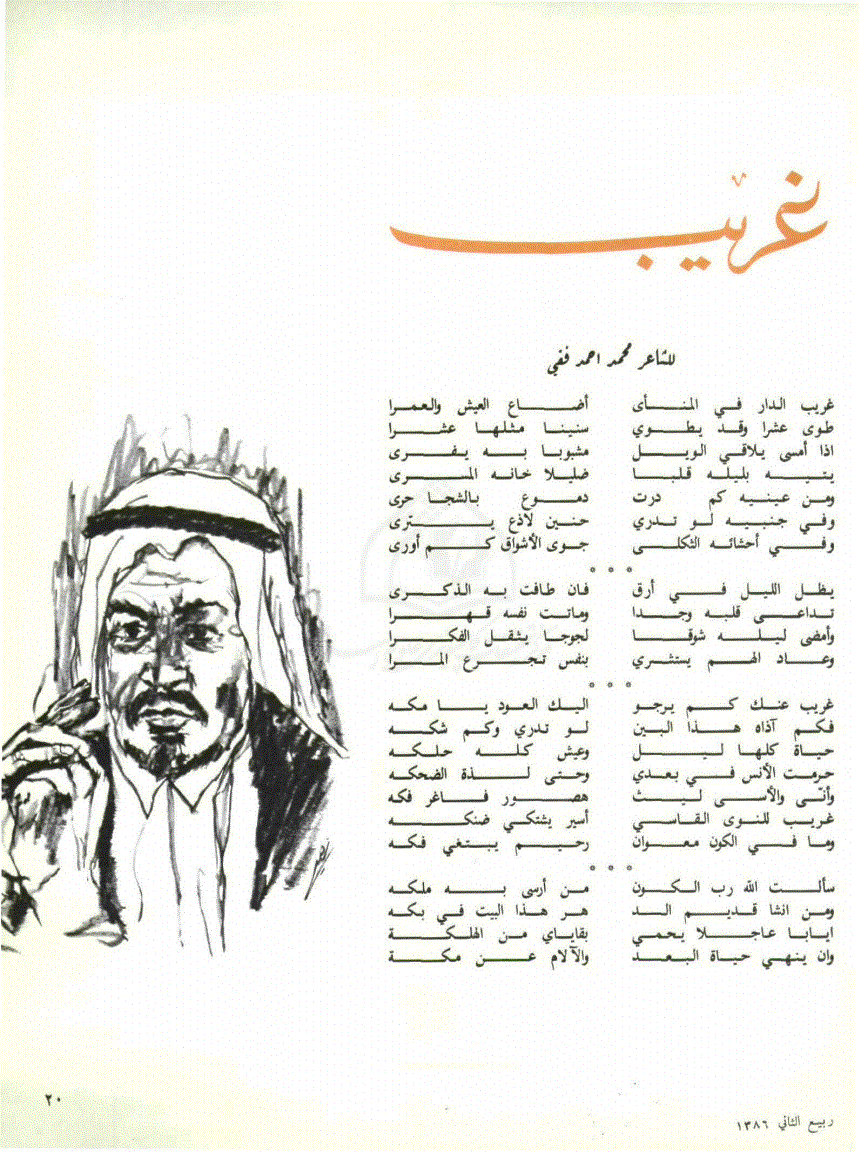 غريب
للشاعر محمد احمد فقي
غريب الدار في المنأى أضاع العيش والعمرا
طوى عشرا وقد يطوي سنينا مثلها عشرا
اذا أمسى يلاقي الويل مشبوبا به يفرى
يتيه بليله قلبا ضليلا خانه المسرى
ومن عينيه كم درت دموع بالشجا حرى
وفي جنبيه لو تدري حنين لاذع يترى
وفي أحشائه الثكلى جوى الأشواق كم أورى
* * *
يظل الليل في أرق فان طافت به الذكرى
تداعى قلبه وجدا وماتت نفسه قهرا
وأمضى ليله شوقا لجوجا يشغل الفكرا
وعاد الهم يستشري بنفس تجرع المرا
* * *
غريب عنك كم يرجو اليك العود يا مكه
فكم آذاه هذا البين لو تدري وكم شكه
حياة كلها ليل وعيش كله حلكه
حرمت الأنس في بعدي وحتى لذة الضحكه
وأنى والأسى ليث هصور فاغر فكه
غريب للنوى القاسي أسير يشتكي ضنكه
وما في الكون معوان رحيم يبتغي فكه
* * *
سألت الله رب الكون من أرسى به ملكه
ومن انشا قديم الد هر هذا البيت في بكه
ايابا عاجلا يحمي بقاياي من الهلكة
وان ينهي حياة البعد والآلام عن مكة
ربيع الثاني ١٣٨٦
٢٠